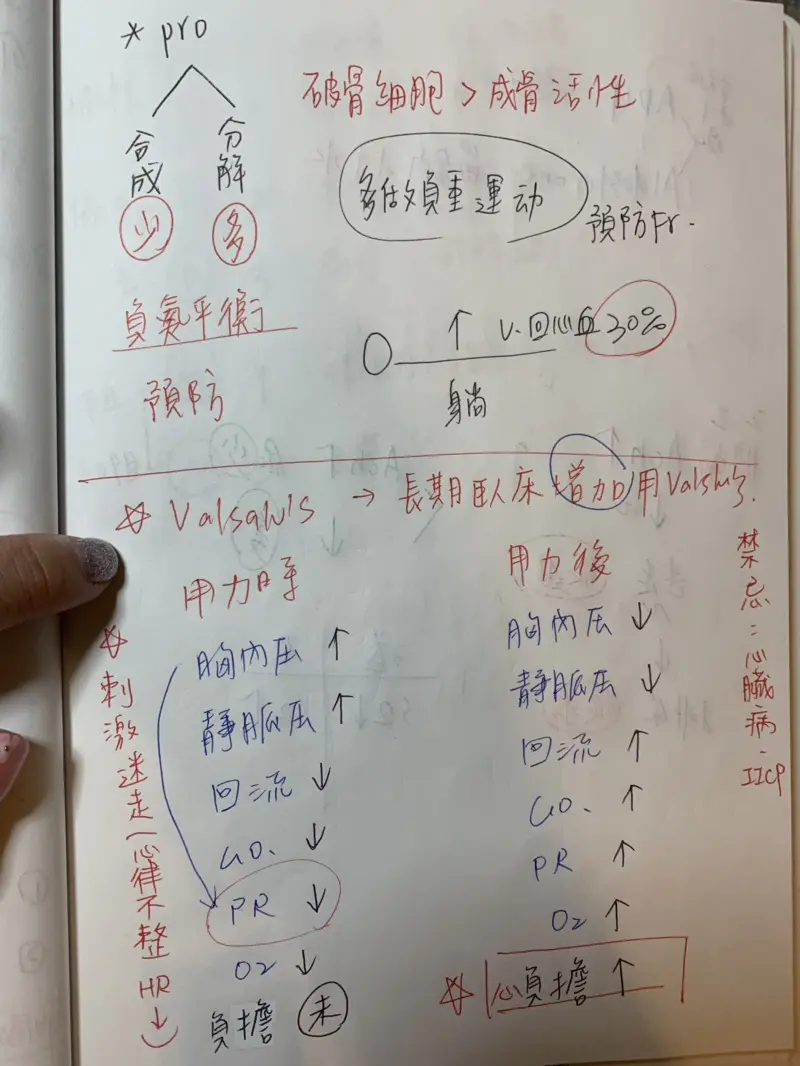 * pro
合成 分解
少 多
負氮平衡
預防
破骨細胞 > 成骨活性
多做負重運动
預防Fr.
↑ V. 回心血 30%
躺
☆ Valsalva's → 長期臥床增加用Valsalva's.
用力時
胸內压 ↑
靜脈压 ↑
回流 ↓
CO. ↓
PR ↓
O2 ↓
負擔 未
☆ 刺激迷走(心律不整 HR↓)
用力後
胸內压 ↓
靜脈压 ↓
回流 ↑
CO. ↑
PR ↑
O2 ↑
☆ 心負擔 ↑
禁忌:心臟病.IICP